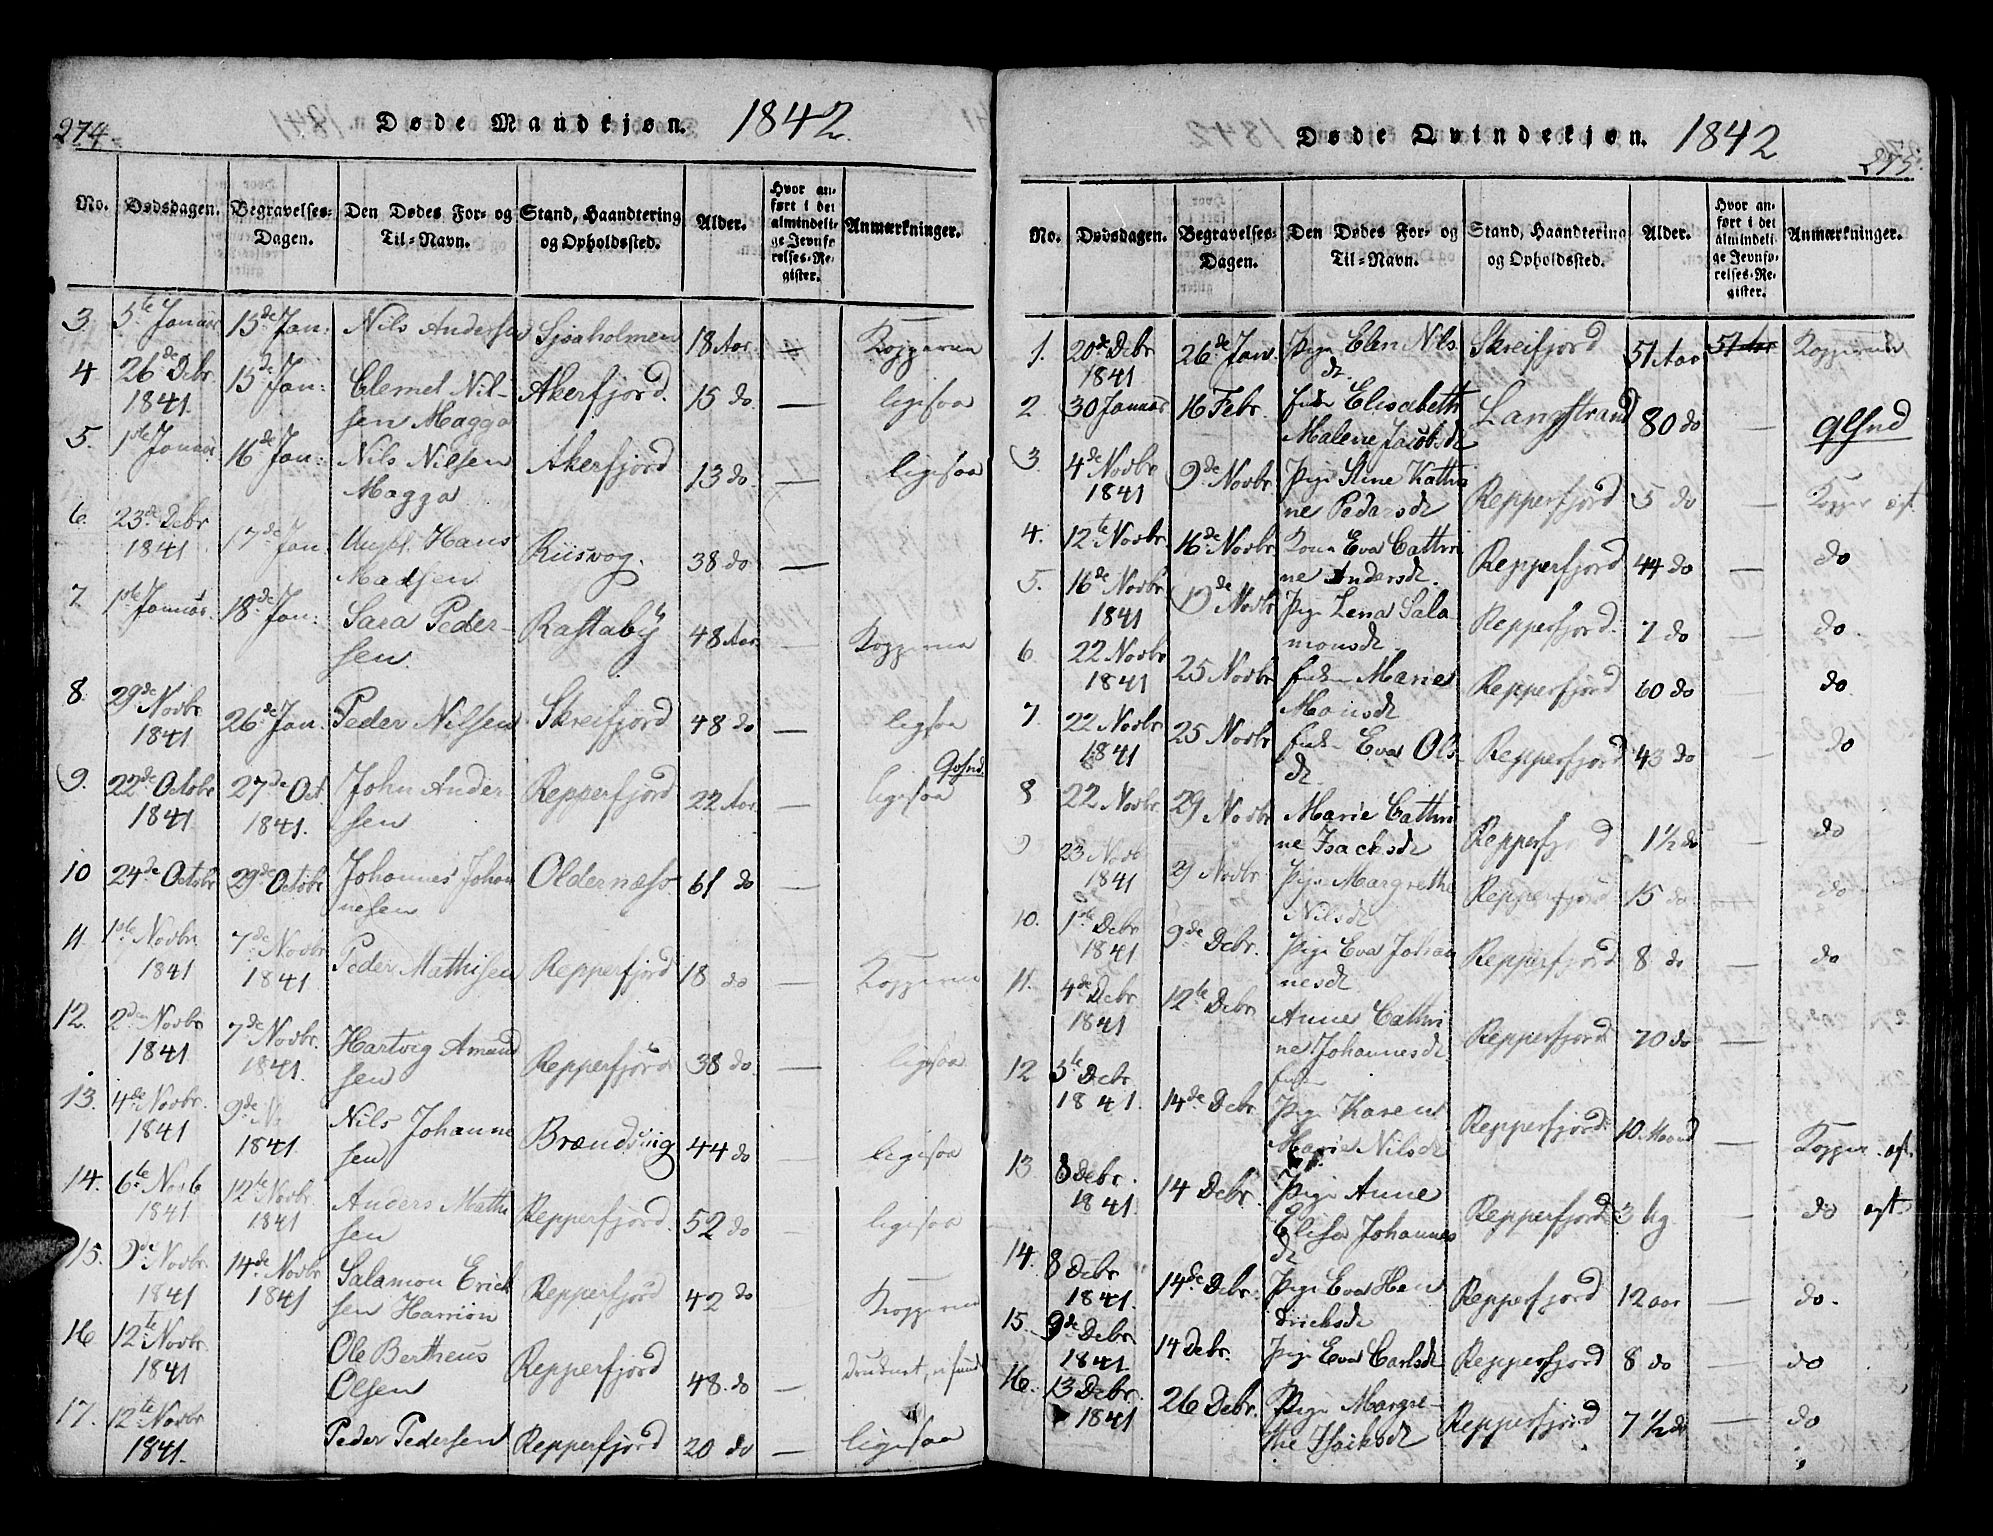 274
Døde Mandkjøn. 1842
No. Dødsdagen. Begravelses-Dagen. Den Dødes For- og Til-Navn. Stand, Haandtering og Opholdssted. Alder. Hvor anført i det almindelige Jevnførelses-Register. Anmærkninger.
3. 5te Januar 15de Jan: Nils Andersen Sjoaholmen 18 Aar Kopperne
4 26de Debr 1841. 15de Jan: Clemet Nilsen Magga Akerfjord. 15 do — ligesaa
5. 1ste Januar 16de Jan: Nils Nilsen Magga Akerfjord 13 do — ligesaa
6. 23de Debr 1841 17de Jan Hans Madsen Riisvog. 38 do —
7 1ste Januar 18de Jan: Sara Pedersen. Rastaby 48 Aar. — Kopperne
8. 29de Novbr 1841 26de Jan Peder Nilsen Skreifjord 48 do — ligesaa
9. 22de Octobr 1841 27de Oct 1841. John Andersen Repperfjord 22 Aar. — ligesaa
10 24de Octobr 29de Octobr Johannes Johannesen Oldernæss 61 do —
11. 1ste Novbr. 1841 7de Novbr 1841 Peder Mathisen Repperfjord 18 do — Kopperne
12. 2den Novbr 1841 7de Novbr. 1841. Hartvig Amundsen Repperfjord 38 do — ligesaa
13. 4de Novbr. 1841 9de No 1841. Nils Johannesen Brændsing 44 do — ligesaa
14. 6te Novb 1841 12te Novbr. 1841 Anders Mathisen Repperfjord. 52 do — ligesaa
15. 9de Novbr. 1841 14de Novbr 1841 Salamon Ericksen Repperfjord 42 do Kopperne
16 12te Novbr. 1841 Ole Bertheus Olsen Repperfjord 48. do — druknet,
17. 12te Novbr 1841. Peder Pedersen Repperfjord 20 do — ligesaa
275.
Døde Qvindekjøn. 1842
No. Dødsdagen. Begravelses-Dagen. Den Dødes For- og Til-Navn. Stand, Haandtering og Opholdssted. Alder. Hvor anført i det almindelige Jevnførelses-Register. Anmærkninger.
1. 20de Debr 1841 26de Jan. Pige Elen Nilsdt. Skreifjord 51 Aar 51 Aar Kopperne
2. 30 Januar 16 Febr. Elisabeth Malene Jacobsdt Langstrand 80 do —
3. 4de Novbr 1841 9de Novbr. Pige Stine Kathrine Pedersdt Repperfjord 5 do — Kopper
4. 12te Novbr. 16de Novbr Kone Eva Cathrine Andersdt. Repperfjord 44 do — do
5. 16de Novbr 1841 19de Novbr Pige Lena Salamonsdt. Repperfjord. 7 do — do
6. 22 Novbr 1841 25 Novbr Marie Monsdt Repperfjord 60 do — do
7. 22 Novbr 1841 25 Novbr Eva Olsdt. Repperfjord 43 do — do
8 22 Novbr. 29 Novbr Marie Cathrine Isachsdt Repperfjord 1 1/2 do — do
9 23 Novb 1841 29 Novbr Pige Margrethe Nilsdt Repperfjord 15 do — do
10. 1ste Debr 1841 9de Debr. Pige Eva Johannesdt. Repperfjord 8 do — do
11. 4de Debr 1841 12te Debr. Anne Cathrine Johannesdt. Repperfjord 70 do —
12 5te Debr. 1841. 14de Debr. Pige Karen Marie Nilsdt Repperfjord 10 Maand — Kopper.
13 8 Debr. 1841 14 Debr. Pige Anne Elisa Johannesdt Repperfjord 3 do
14. 8 Debr 1841. 14de Debr. Pige Eva Hendricksdt Repperfjord 12 aar — do.
15. 9de Debr. 1841. 14 Debr. Pige Eva Carlsdt Repperfjord 8 do — do
16. 13 Debr. 1841 26 Debr. Pige Margrethe Isaksdt Repperfjord 7 1/2 do — do